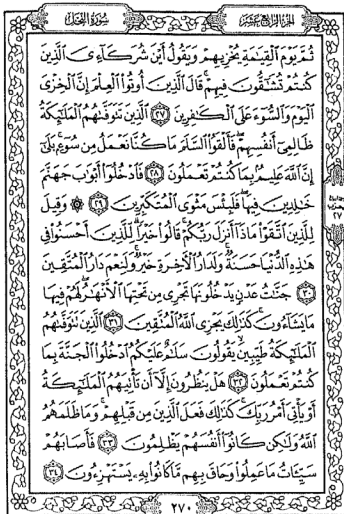 سُورَةُ النَّحْلِ
الجُزْءُ الرَّابِعَ عَشَرَ
ثُمَّ يَوْمَ ٱلْقِيَٰمَةِ يُخْزِيهِمْ وَيَقُولُ أَيْنَ شُرَكَآءِىَ ٱلَّذِينَ
كُنتُمْ تُشَٰٓقُّونَ فِيهِمْ قَالَ ٱلَّذِينَ أُوتُوا۟ ٱلْعِلْمَ إِنَّ ٱلْخِزْىَ
ٱلْيَوْمَ وَٱلسُّوٓءَ عَلَى ٱلْكَٰفِرِينَ ٢٧ ٱلَّذِينَ تَتَوَفَّىٰهُمُ ٱلْمَلَٰٓئِكَةُ
ظَالِمِىٓ أَنفُسِهِمْ فَأَلْقَوُا۟ ٱلسَّلَمَ مَا كُنَّا نَعْمَلُ مِن سُوٓءٍۭ بَلَىٰٓ
إِنَّ ٱللَّهَ عَلِيمٌۢ بِمَا كُنتُمْ تَعْمَلُونَ ٢٨ فَٱدْخُلُوٓا۟ أَبْوَٰبَ جَهَنَّمَ
خَٰلِدِينَ فِيهَا فَلَبِئْسَ مَثْوَى ٱلْمُتَكَبِّرِينَ ٢٩ ۞ وَقِيلَ
لِلَّذِينَ ٱتَّقَوْا۟ مَاذَآ أَنزَلَ رَبُّكُمْ قَالُوا۟ خَيْرًا لِّلَّذِينَ أَحْسَنُوا۟ فِى
هَٰذِهِ ٱلدُّنْيَا حَسَنَةٌ وَلَدَارُ ٱلْءَاخِرَةِ خَيْرٌ وَلَنِعْمَ دَارُ ٱلْمُتَّقِينَ
٣٠ جَنَّٰتُ عَدْنٍ يَدْخُلُونَهَا تَجْرِى مِن تَحْتِهَا ٱلْأَنْهَٰرُ لَهُمْ فِيهَا
مَا يَشَآءُونَ كَذَٰلِكَ يَجْزِى ٱللَّهُ ٱلْمُتَّقِينَ ٣١ ٱلَّذِينَ تَتَوَفَّىٰهُمُ
ٱلْمَلَٰٓئِكَةُ طَيِّبِينَ يَقُولُونَ سَلَٰمٌ عَلَيْكُمُ ٱدْخُلُوا۟ ٱلْجَنَّةَ بِمَا
كُنتُمْ تَعْمَلُونَ ٣٢ هَلْ يَنظُرُونَ إِلَّآ أَن تَأْتِيَهُمُ ٱلْمَلَٰٓئِكَةُ
أَوْ يَأْتِىَ أَمْرُ رَبِّكَ كَذَٰلِكَ فَعَلَ ٱلَّذِينَ مِن قَبْلِهِمْ وَمَا ظَلَمَهُمُ
ٱللَّهُ وَلَٰكِن كَانُوٓا۟ أَنفُسَهُمْ يَظْلِمُونَ ٣٣ فَأَصَابَهُمْ
سَيِّـَٔاتُ مَا عَمِلُوا۟ وَحَاقَ بِهِم مَّا كَانُوا۟ بِهِۦ يَسْتَهْزِءُونَ ٣٤
٢٧٠